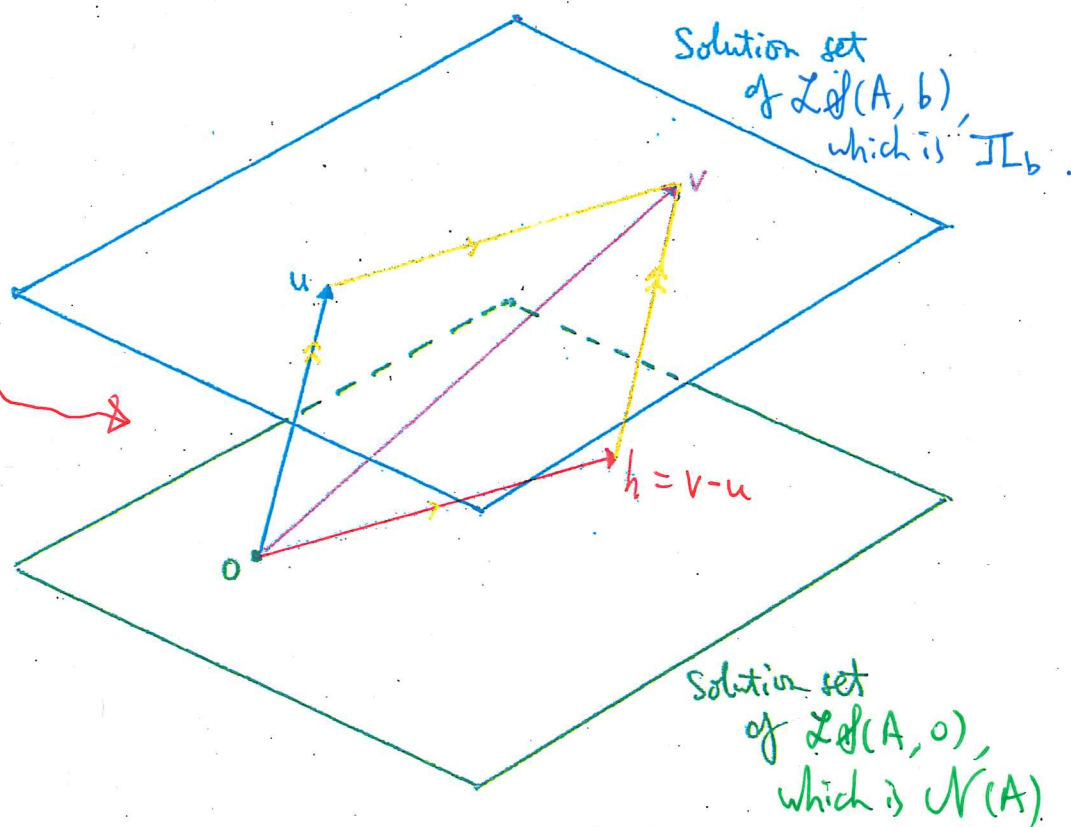 Solution set
of LS(A, b),
which is Π_b.
v
u
h = v-u
0
Solution set
of LS(A, 0),
which is N(A).